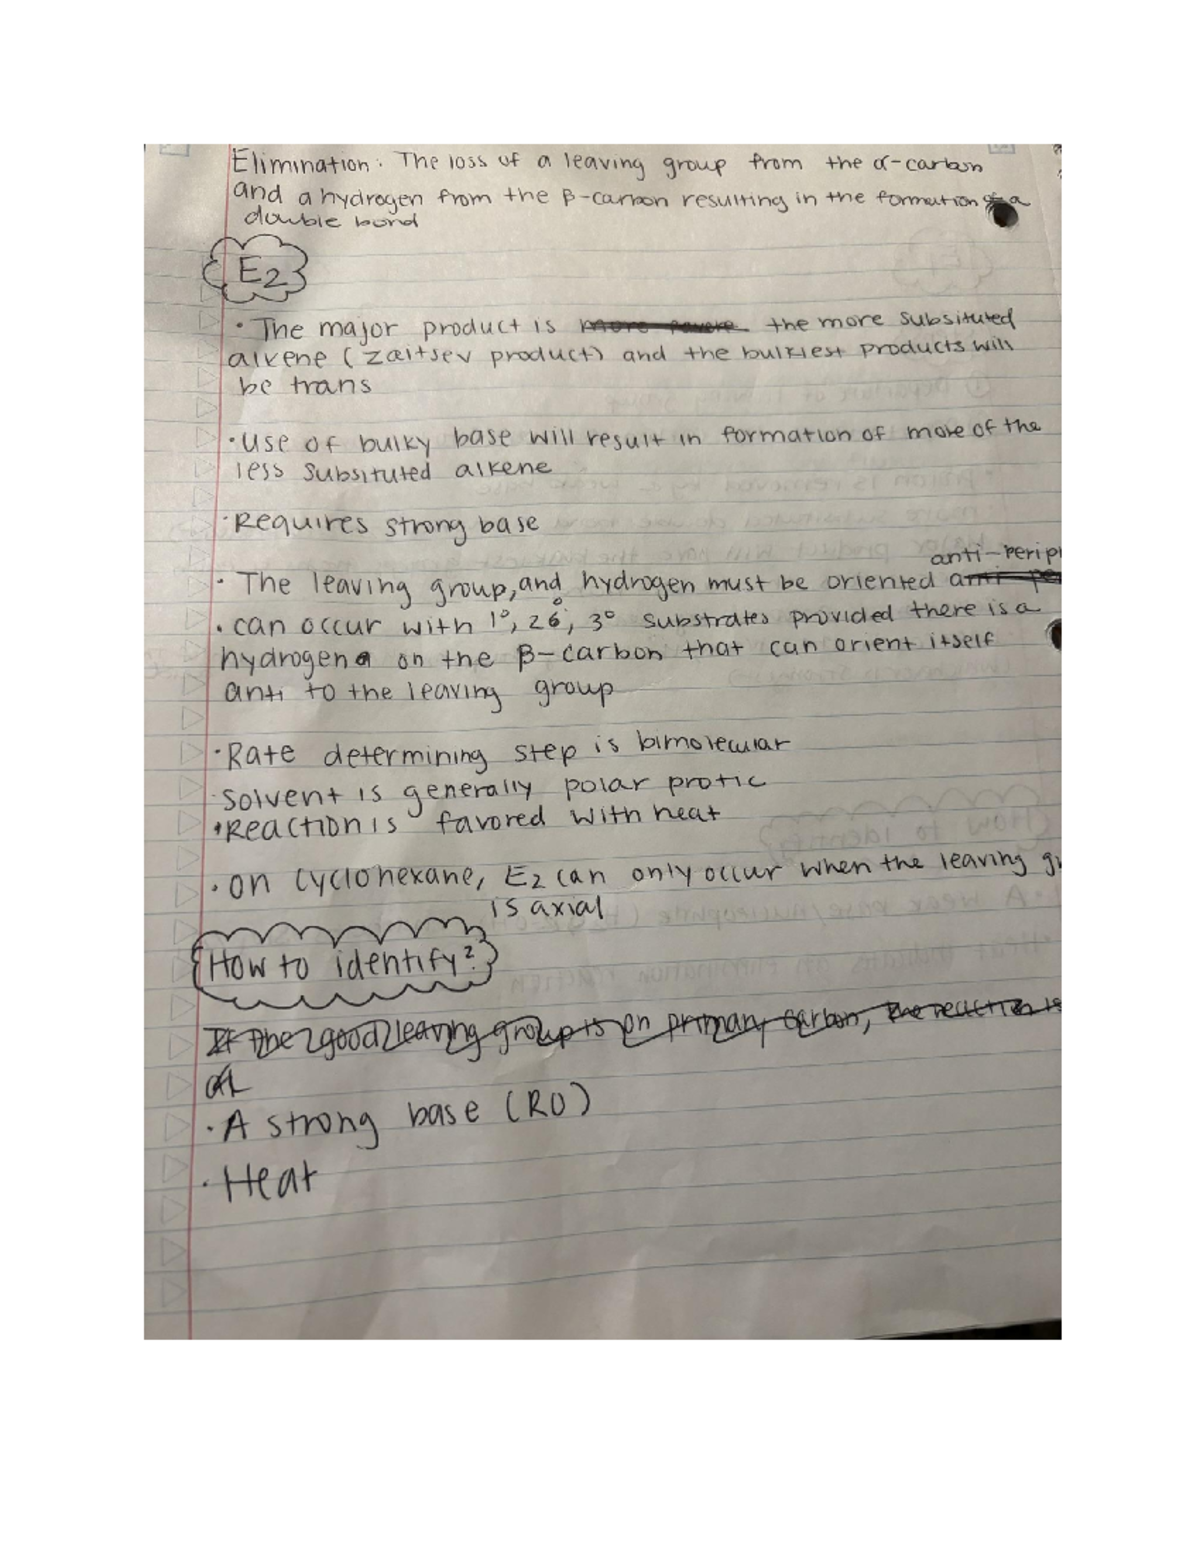 Elimination: The loss of a leaving group from the α-carbon
and a hydrogen from the β-carbon resulting in the formation of a
double bond
E2
• The major product is more favore the more subsituted
alkene (zaitsev product) and the bulkiest products will
be trans
• Use of bulky base will result in formation of more of the
less subsituted alkene
• Requires strong base
anti-perip
• The leaving group, and hydrogen must be oriented anti pe
• can occur with 1°, 2°, 3° substrates provided there is a
hydrogen on the β-carbon that can orient itself
anti to the leaving group
• Rate determining step is bimolecular
• Solvent is generally polar protic
• Reaction is favored with heat
• On cyclohexane, E2 can only occur when the leaving gr
is axial
How to identify?
If the good leaving group is on primary carbon, the reaction is
• A strong base (RO)
• Heat